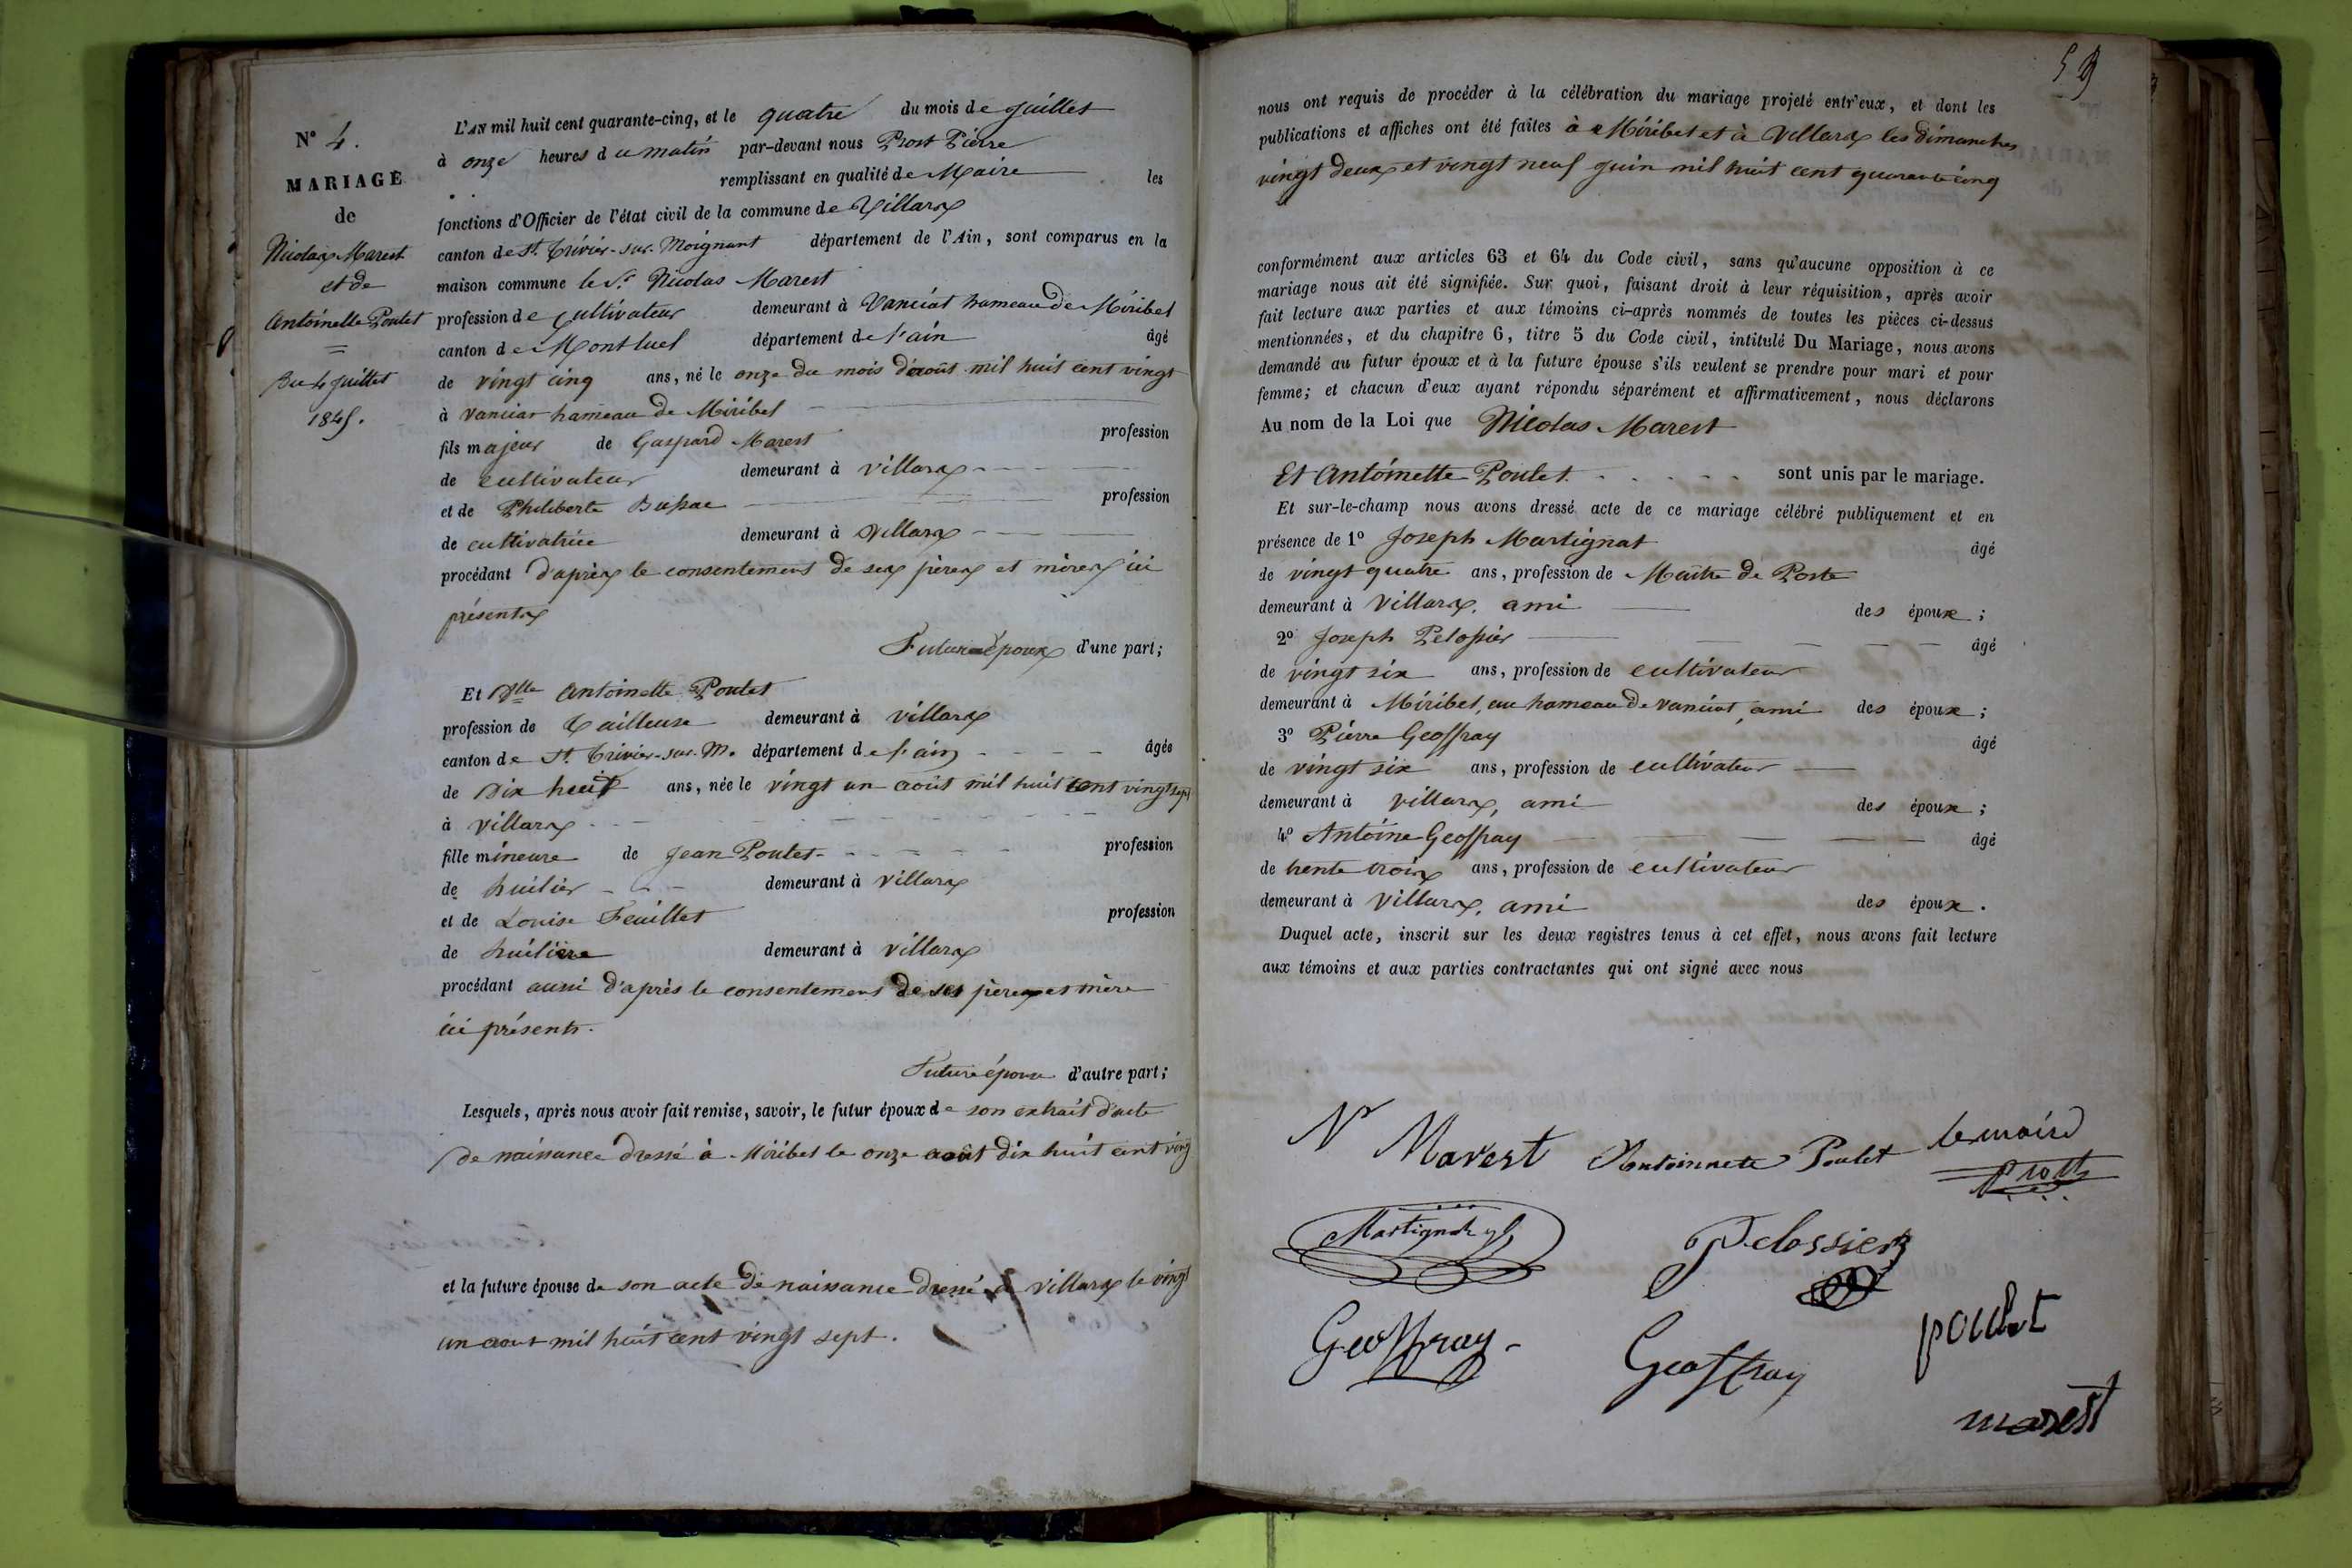 N° 4.
MARIAGE
de
Nicolas Marest
et de
Antoinette Poulet
=
Du 4 juillet
1845.
L'AN mil huit cent quarante-cinq, et le quatre du mois de juillet
à onze heures du matin par-devant nous Prost Pierre
remplissant en qualité de Maire les
fonctions d'Officier de l'état civil de la commune de Villars
canton de St. Trivier-sur-Moignant département de l'Ain, sont comparus en la
maison commune le Sr. Nicolas Marest
profession de Cultivateur demeurant à Vanciat hameau de Miribel
canton de Montluel département de l'ain âgé
de vingt cinq ans, né le onze du mois d'août mil huit cent vingt
à vanciat hameau de Miribel
fils majeur de Gaspard Marest profession
de cultivateur demeurant à villars
et de Philiberte profession
de cultivatrice demeurant à Villars
procédant d'après le consentement de ses pères et mères ici
présents
Futur époux d'une part;
Et Dlle Antoinette Poulet
profession de Tailleuse demeurant à villars
canton de St. Trivier-sur-M. département de l'ain âgée
de Dix huit ans, née le vingt un août mil huit cent vingt sept
à Villars
fille mineure de Jean Poulet profession
de huilier demeurant à villars
et de Louise Feuillet profession
de huilière demeurant à villars
procédant aussi d'après le consentement de ses pères et mère
ici présents.
Future épouse d'autre part;
Lesquels, après nous avoir fait remise, savoir, le futur époux de son extrait d'acte
de naissance dressé à Miribel le onze août dix huit cent vingt
et la future épouse de son acte de naissance dressé à villars le vingt
un aout mil huit cent vingt sept.
59
nous ont requis de procéder à la célébration du mariage projeté entr'eux, et dont les
publications et affiches ont été faites à Miribel et à Villars les dimanches
vingt deux et vingt neuf juin mil huit cent quarante cinq
conformément aux articles 63 et 64 du Code civil, sans qu'aucune opposition à ce
mariage nous ait été signifiée. Sur quoi, faisant droit à leur réquisition, après avoir
fait lecture aux parties et aux témoins ci-après nommés de toutes les pièces ci-dessus
mentionnées, et du chapitre 6, titre 5 du Code civil, intitulé Du Mariage, nous avons
demandé au futur époux et à la future épouse s'ils veulent se prendre pour mari et pour
femme; et chacun d'eux ayant répondu séparément et affirmativement, nous déclarons
Au nom de la Loi que Nicolas Marest
Et Antoinette Poulet sont unis par le mariage.
Et sur-le-champ nous avons dressé acte de ce mariage célébré publiquement et en
présence de 1° Joseph Martignat âgé
de vingt quatre ans, profession de Maître de Poste
demeurant à Villars, ami des époux;
2° Joseph Pelossier âgé
de vingt six ans, profession de cultivateur
demeurant à Miribel, au hameau de vanciat, ami des époux;
3° Pierre Geoffray âgé
de vingt six ans, profession de cultivateur
demeurant à villars, ami des époux;
4° Antoine Geoffray âgé
de trente trois ans, profession de cultivateur
demeurant à Villars, ami des époux.
Duquel acte, inscrit sur les deux registres tenus à cet effet, nous avons fait lecture
aux témoins et aux parties contractantes qui ont signé avec nous
Ns Marest Antoinnete Poulet le maire
prost
Martignat
Pelossier
Geoffray
Geoffray
poulet
marest